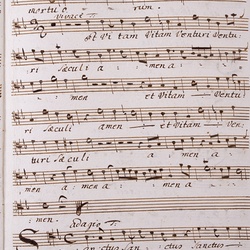 mortu o rum.
Vivace T:
Et Vi tam Vitam Venturi Ventu:
ri sæculi a men a
men et Vitam Ventu
ri sæculi amen et Vitam Ven:
turi sæculi a men a
men a men a
men.
adagio T:
Sanctus San ctus Sanctus